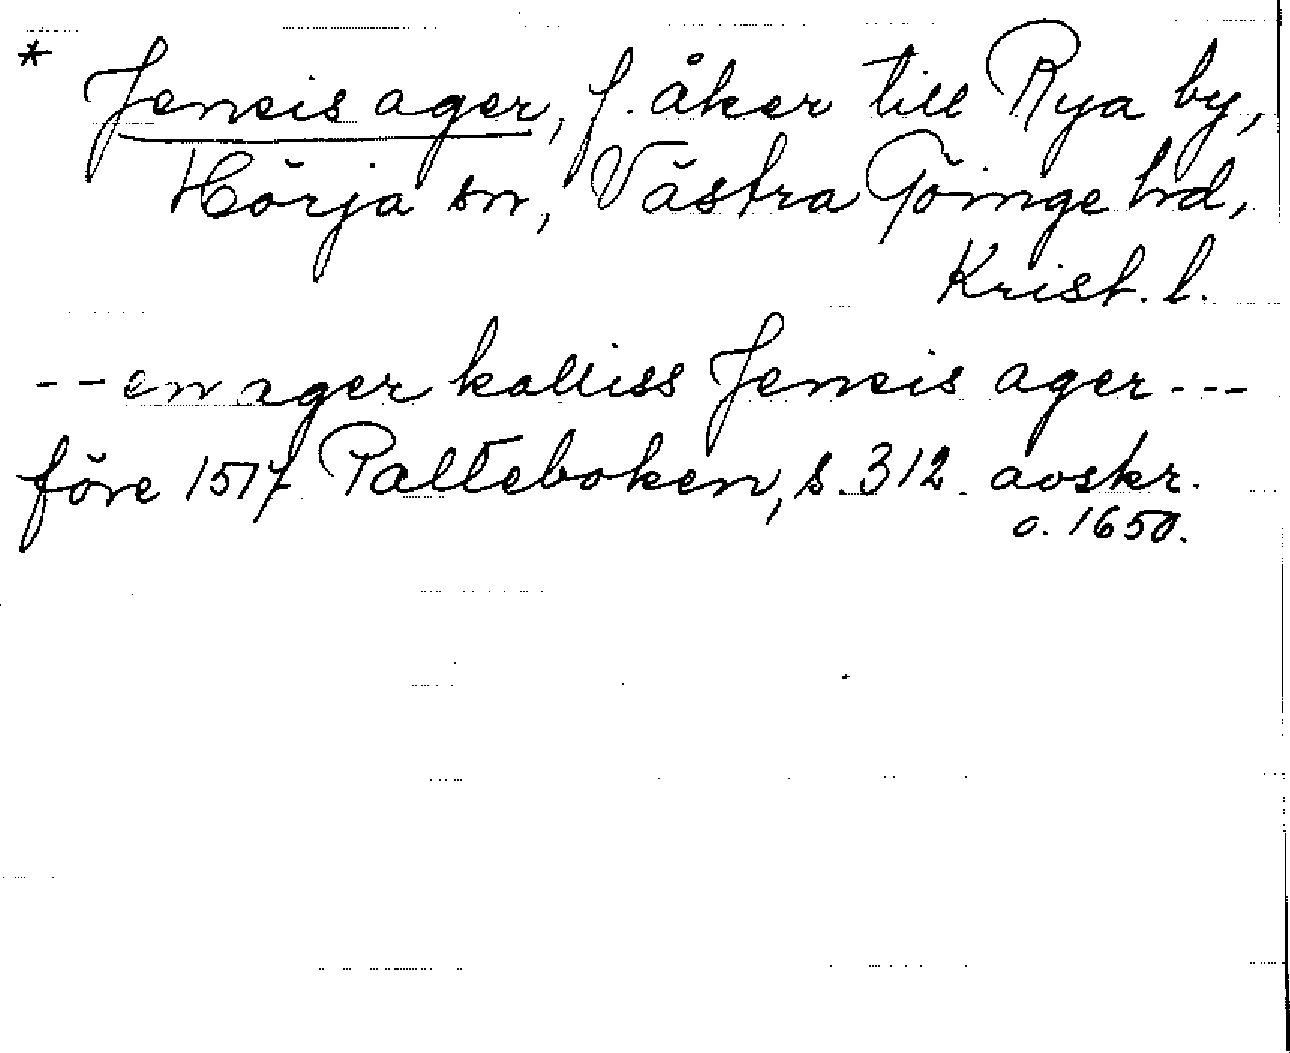 * Jeneis ager, f. åker till Rya by,
Hörja sn, Västra Göinge hd,
Krist. l.
-- en ager kalliss Jeneis ager ---
före 1517 Palteboken, s. 312. avskr.
o. 1650.